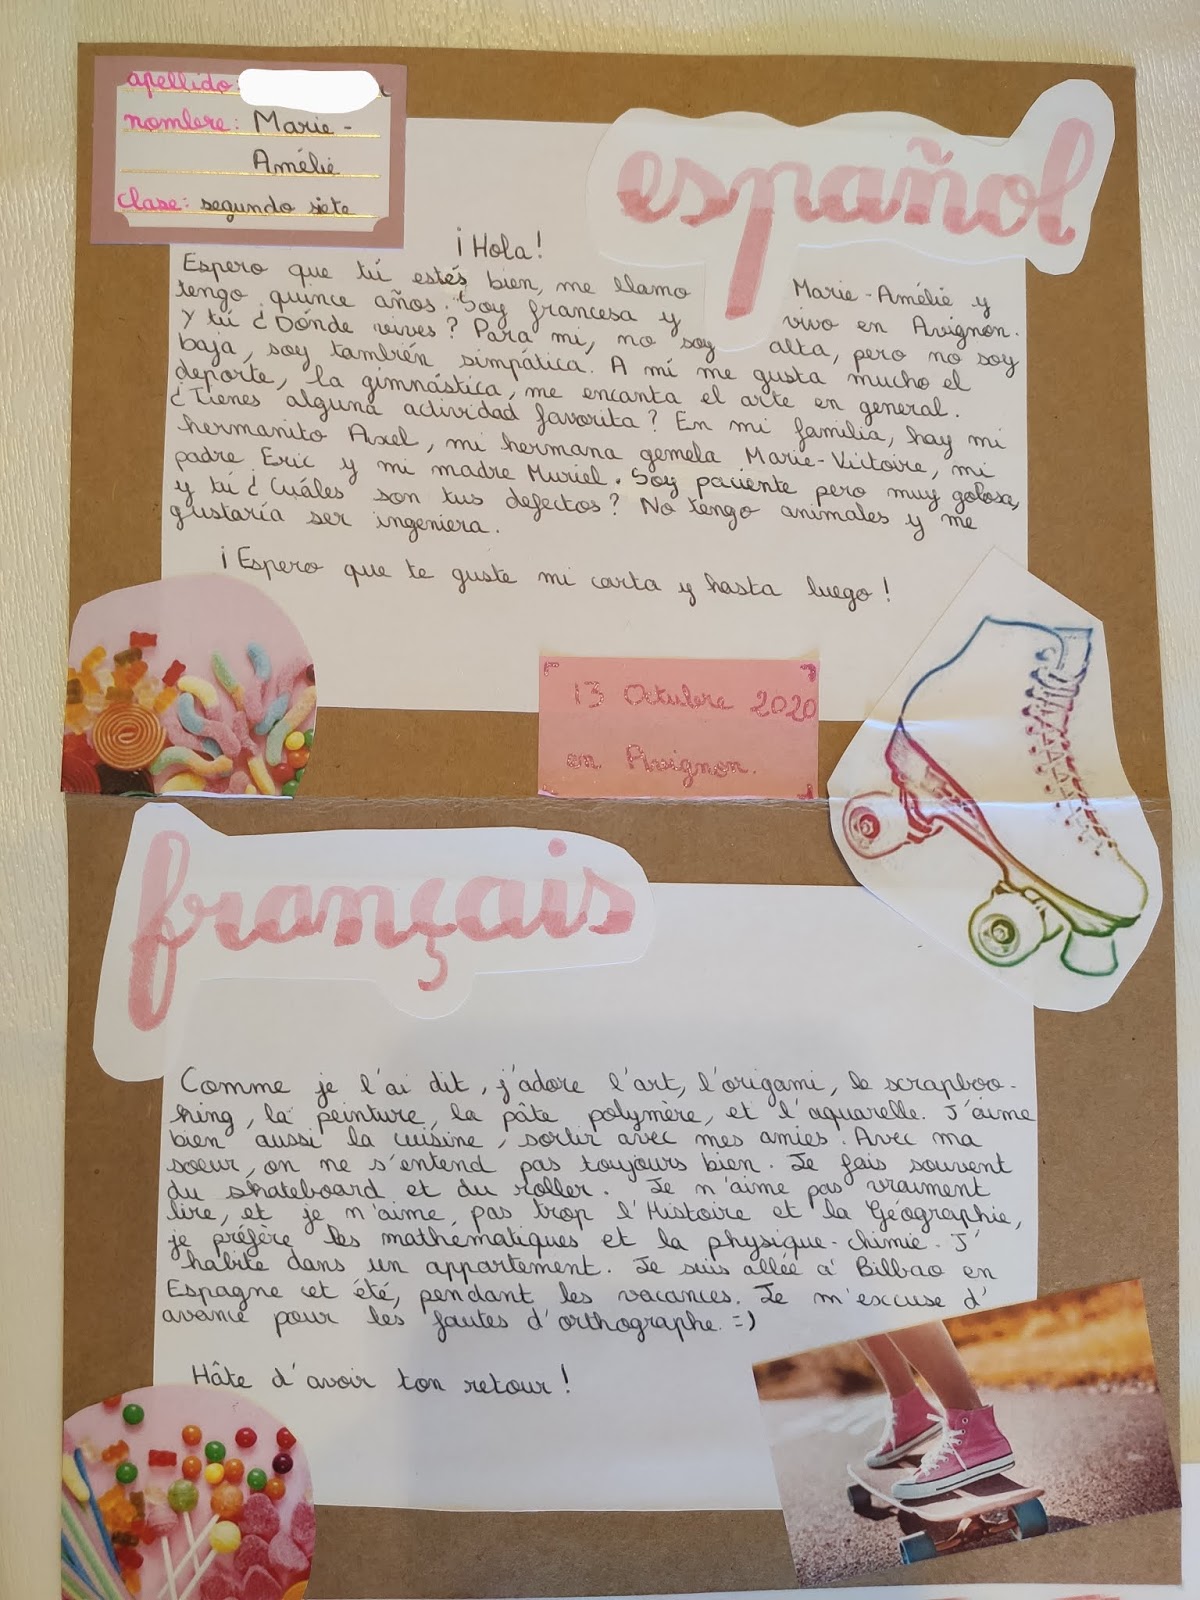 apellido:
nombre: Marie-
Amélie
clase: segundo siete
español
¡Hola!
Espero que tú estés bien, me llamo Marie-Amélie y
tengo quince años. Soy francesa y vivo en Avignon.
y tú ¿Dónde vives? Para mi, no soy alta, pero no soy
baja, soy también simpática. A mí me gusta mucho el
deporte, la gimnástica, me encanta el arte en general.
¿Tienes alguna actividad favorita? En mi familia, hay mi
hermanito Axel, mi hermana gemela Marie-Victoire, mi
padre Eric y mi madre Muriel. Soy paciente pero muy golosa,
y tú ¿Cuáles son tus defectos? No tengo animales y me
gustaría ser ingeniera.
¡Espero que te guste mi carta y hasta luego!
13 Octubre 2020
en Avignon.
français
Comme je l'ai dit, j'adore l'art, l'origami, le scrapboo-
king, la peinture, la pâte polymère, et l'aquarelle. J'aime
bien aussi la cuisine, sortir avec mes amies. Avec ma
soeur, on ne s'entend pas toujours bien. Je fais souvent
du skateboard et du roller. Je n'aime pas vraiment
lire, et je n'aime pas trop l'Histoire et la Géographie,
je préfère les mathématiques et la physique-chimie. J'
habite dans un appartement. Je suis allée à Bilbao en
Espagne cet été, pendant les vacances. Je m'excuse d'
avance pour les fautes d'orthographe. =)
Hâte d'avoir ton retour!